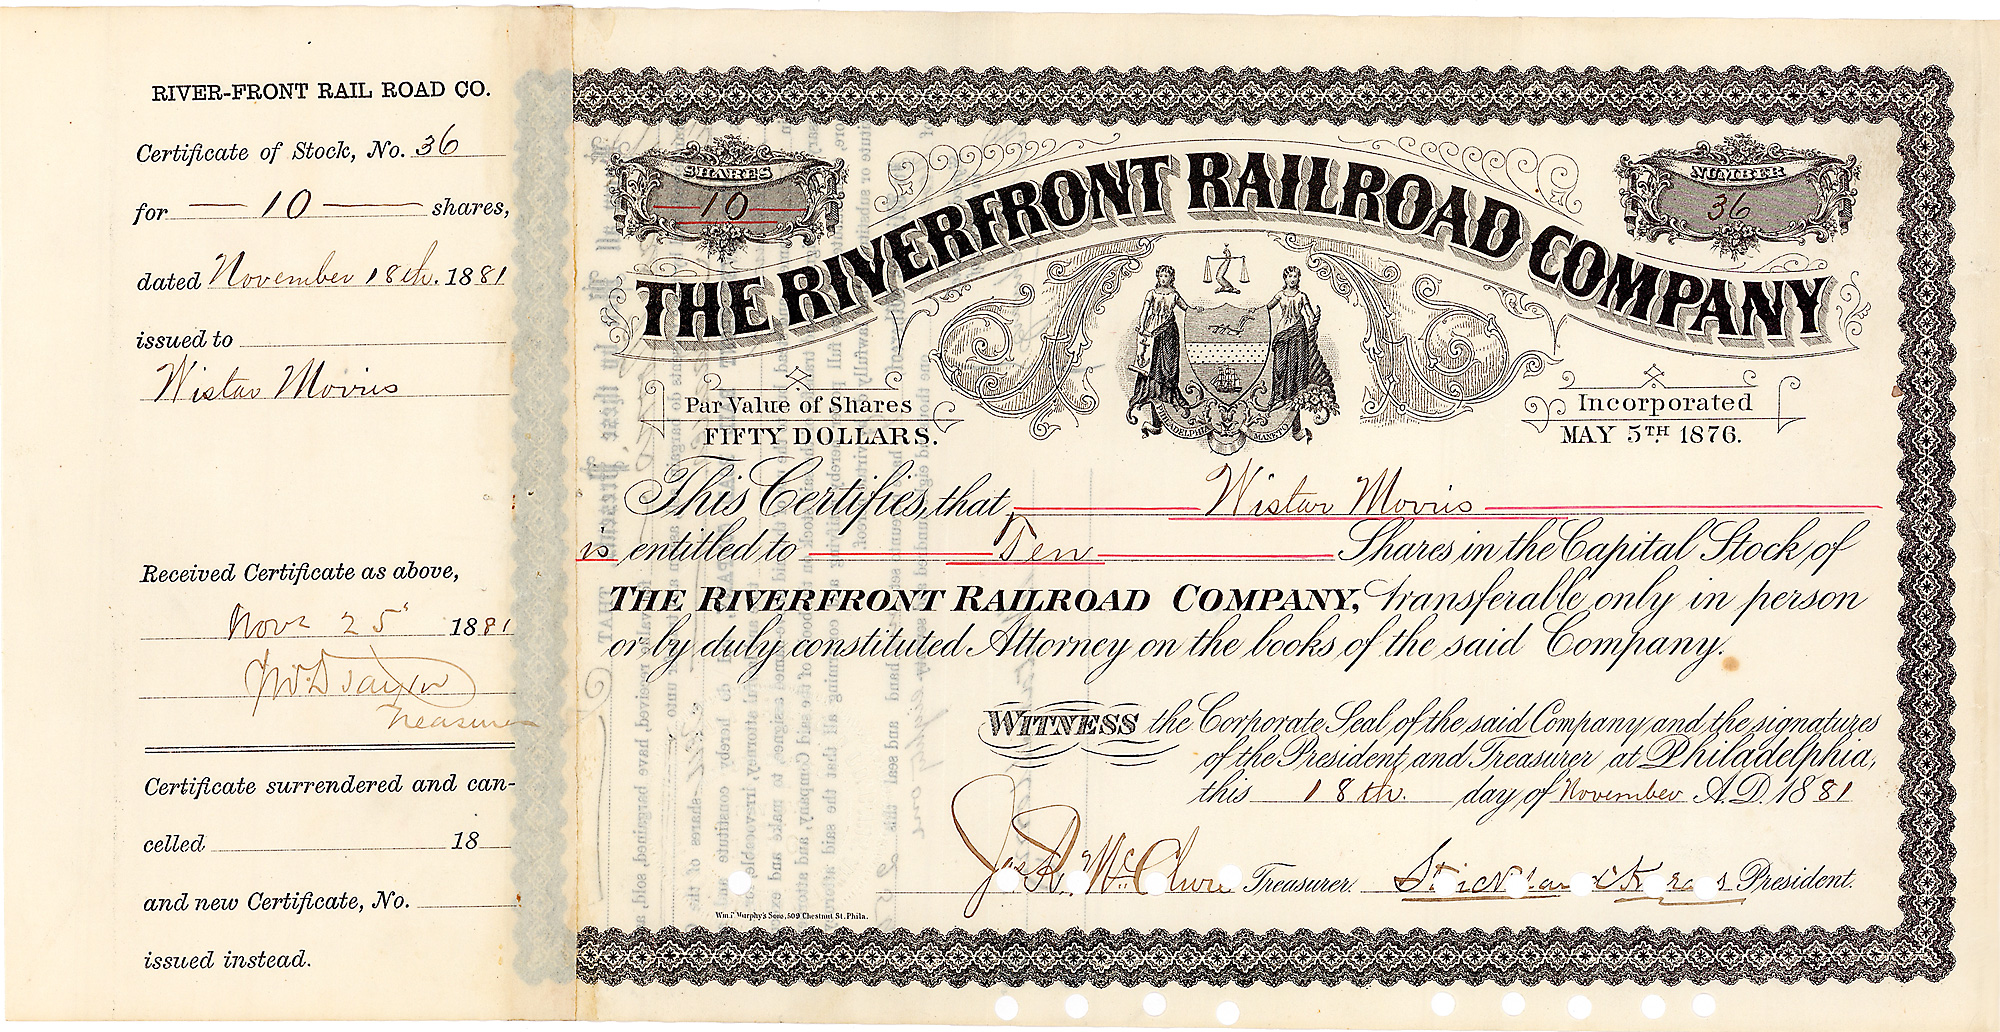 RIVER-FRONT RAIL ROAD CO.
Certificate of Stock, No. 36
for 10 shares,
dated November 18th. 1881
issued to
Wistar Morris
Received Certificate as above,
Nov 25 1881
Treasurer
Certificate surrendered and can-
celled 18
and new Certificate, No.
issued instead.
SHARES
10
NUMBER
36
THE RIVERFRONT RAILROAD COMPANY
Par Value of Shares
FIFTY DOLLARS.
Incorporated
MAY 5TH 1876.
This Certifies, that Wistar Morris
is entitled to Ten Shares in the Capital Stock of
THE RIVERFRONT RAILROAD COMPANY, transferable only in person
or by duly constituted Attorney on the books of the said Company.
WITNESS the Corporate Seal of the said Company and the signatures
of the President and Treasurer at Philadelphia,
this 18th. day of November A.D. 1881
Jas R. McClure Treasurer. Strickland Kneass President.
Wm. F. Murphy's Sons, 509 Chestnut St. Phila.